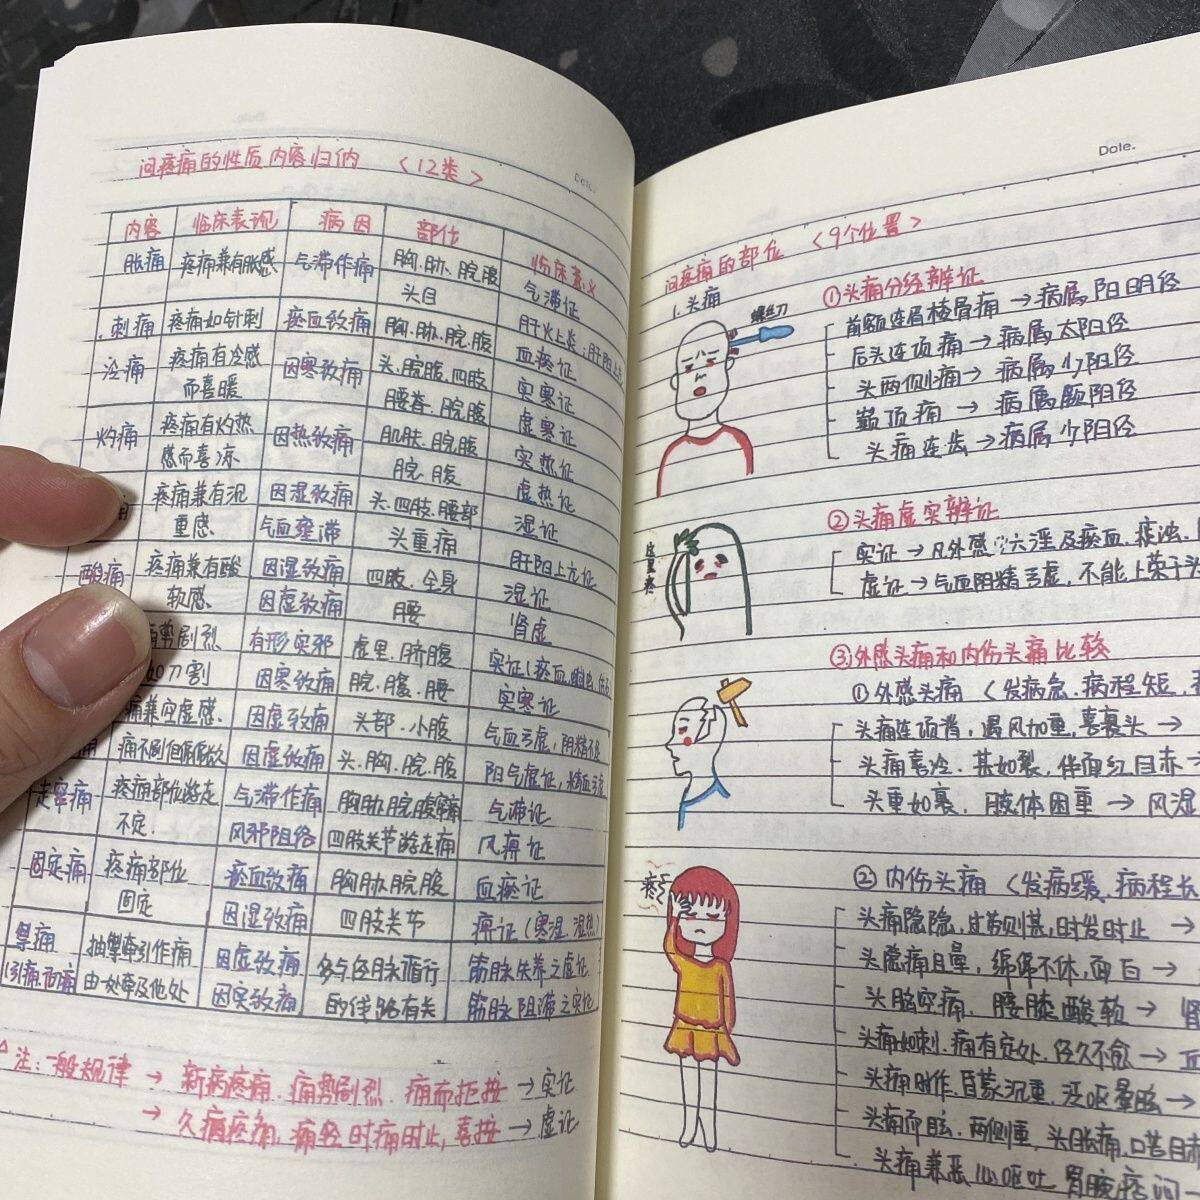 问疼痛的性质内容归纳 〈12类〉
Date.
内容 临床表现 病因 部位 临床意义
胀痛 疼痛兼有胀感 气滞作痛 胸.胁.脘腹 气滞证
头目 肝火上炎;肝阳上亢
刺痛 疼痛如针刺 瘀血致痛 胸.胁.脘.腹 血瘀证
冷痛 疼痛有冷感 因寒致痛 头.脘腹.四肢 实寒证
而喜暖 腰脊.脘腹 虚寒证
灼痛 疼痛有灼热 因热致痛 肌肤.脘腹 实热证
感而喜凉 脘.腹 虚热证
痛 疼痛兼有沉 因湿致痛 头.四肢.腰部 湿证
重感 气血壅滞 头重痛 肝阳上亢证
酸痛 疼痛兼有酸 因湿致痛 四肢.全身 湿证
软感 因虚致痛 腰 肾虚
剧烈 有形实邪 虚里.脐腹 实证(瘀血.
如刀割 因寒致痛 脘.腹.腰 实寒证
痛兼空虚感. 因虚致痛 头部.小腹 气血亏虚,阴精不足
痛 痛不剧但绵绵 因虚致痛 头.胸.脘.腹 阳气虚证,
走窜痛 疼痛部位游走 气滞作痛 胸胁脘腹窜痛 气滞证
不定. 风邪阻络 四肢关节游走痛 风痹证
固定痛 疼痛部位 瘀血致痛 胸胁脘腹 血瘀证
固定 因湿致痛 四肢关节 痹证(寒湿.湿热)
掣痛 抽掣牵引作痛 因虚致痛 多与经脉循行 筋脉失养之虚证
(引痛.彻痛) 由一处牵及他处 因实致痛 的线路有关 筋脉阻滞之实证
△注:一般规律 → 新病疼痛.痛势剧烈.痛而拒按 → 实证
→ 久痛疼痛,痛轻时痛时止,喜按 → 虚证
Date.
问疼痛的部位 〈9个位置〉
1.头痛
螺丝刀
①头痛分经辨证
前额连眉棱骨痛 → 病属阳明经
后头连项痛 → 病属太阳经
头两侧痛 → 病属少阳经
巅顶痛 → 病属厥阴经
头痛连齿 → 病属少阴经
②头痛虚实辨证
这里疼
实证 → 凡外感六淫及瘀血.痰浊.
虚证 → 气血阴精亏虚,不能上荣于头
③外感头痛和内伤头痛比较
①外感头痛 〈发病急.病程短.
头痛连项背,遇风加重,喜裹头 →
头痛喜冷.甚如裂,伴面红目赤 →
头重如裹.肢体困重 → 风湿
疼
②内伤头痛 〈发病缓.病程长
头痛隐隐,过劳则甚,时发时止 →
头隐痛且晕,绵绵不休,面白 →
头脑空痛.腰膝酸软 → 肾
头痛如刺.痛有定处.经久不愈 → 血
头痛时作.昏蒙沉重.泛呕晕眩 →
头痛而眩.两侧重.头胀痛.口苦目赤
头痛兼恶心呕吐.胃脘疼闷 →